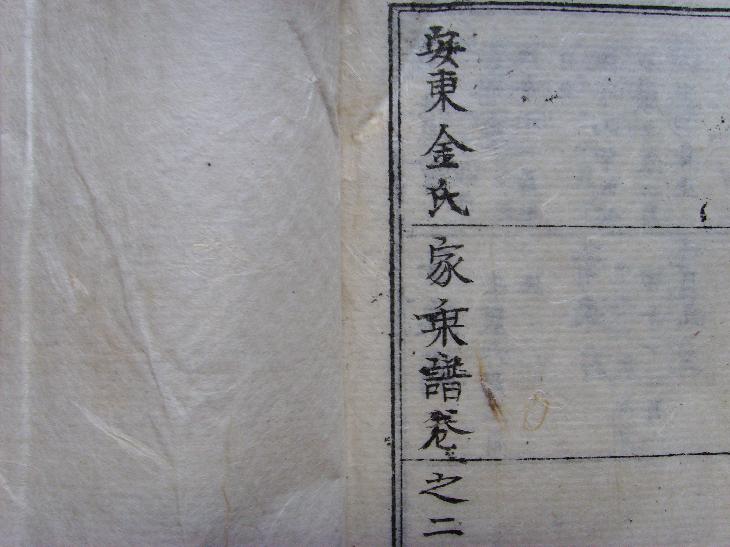 安東金氏家乗譜卷之二